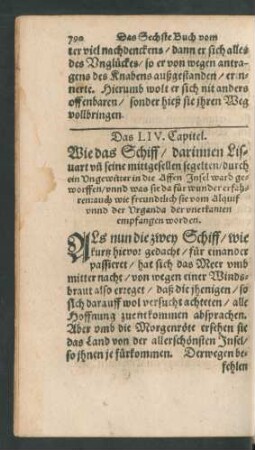 790 Das Sechste Buch vom
ter viel nachdenckens / dann er sich alles
des Vnglückes / so er von wegen antra-
gens des Knabens außgestanden / erin-
nerte. Hierumb wolt er sich nit anders
offenbaren / sonder hieß sie jhren Weg
vollbringen.
Das LIV. Capitel.
Wie das Schiff / darinnen Lis-
uart vñ seine mittgesellen segelten / durch
ein Vngewitter in die Affen Insel ward ge-
worffen / vnnd was sie da für wunder erfah-
ren: auch wie freundtlich sie vom Alquif
vnnd der Vrganda der vnerkanten
empfangen worden.
ALs nun die zwey Schiff / wie
kurtz hievor gedacht / für einander
passieret / hat sich das Meer vmb
mitternacht / von wegen einer Winds-
braut also erreget / daß die jhenigen / so
sich darauff wol versucht achteten / alle
Hoffnung zuentkommen absprachen.
Aber vmb die Morgenröte ersehen sie
das Land von der allerschönsten Insel /
so jhnen je fürkommen. Derwegen be-
fehlen